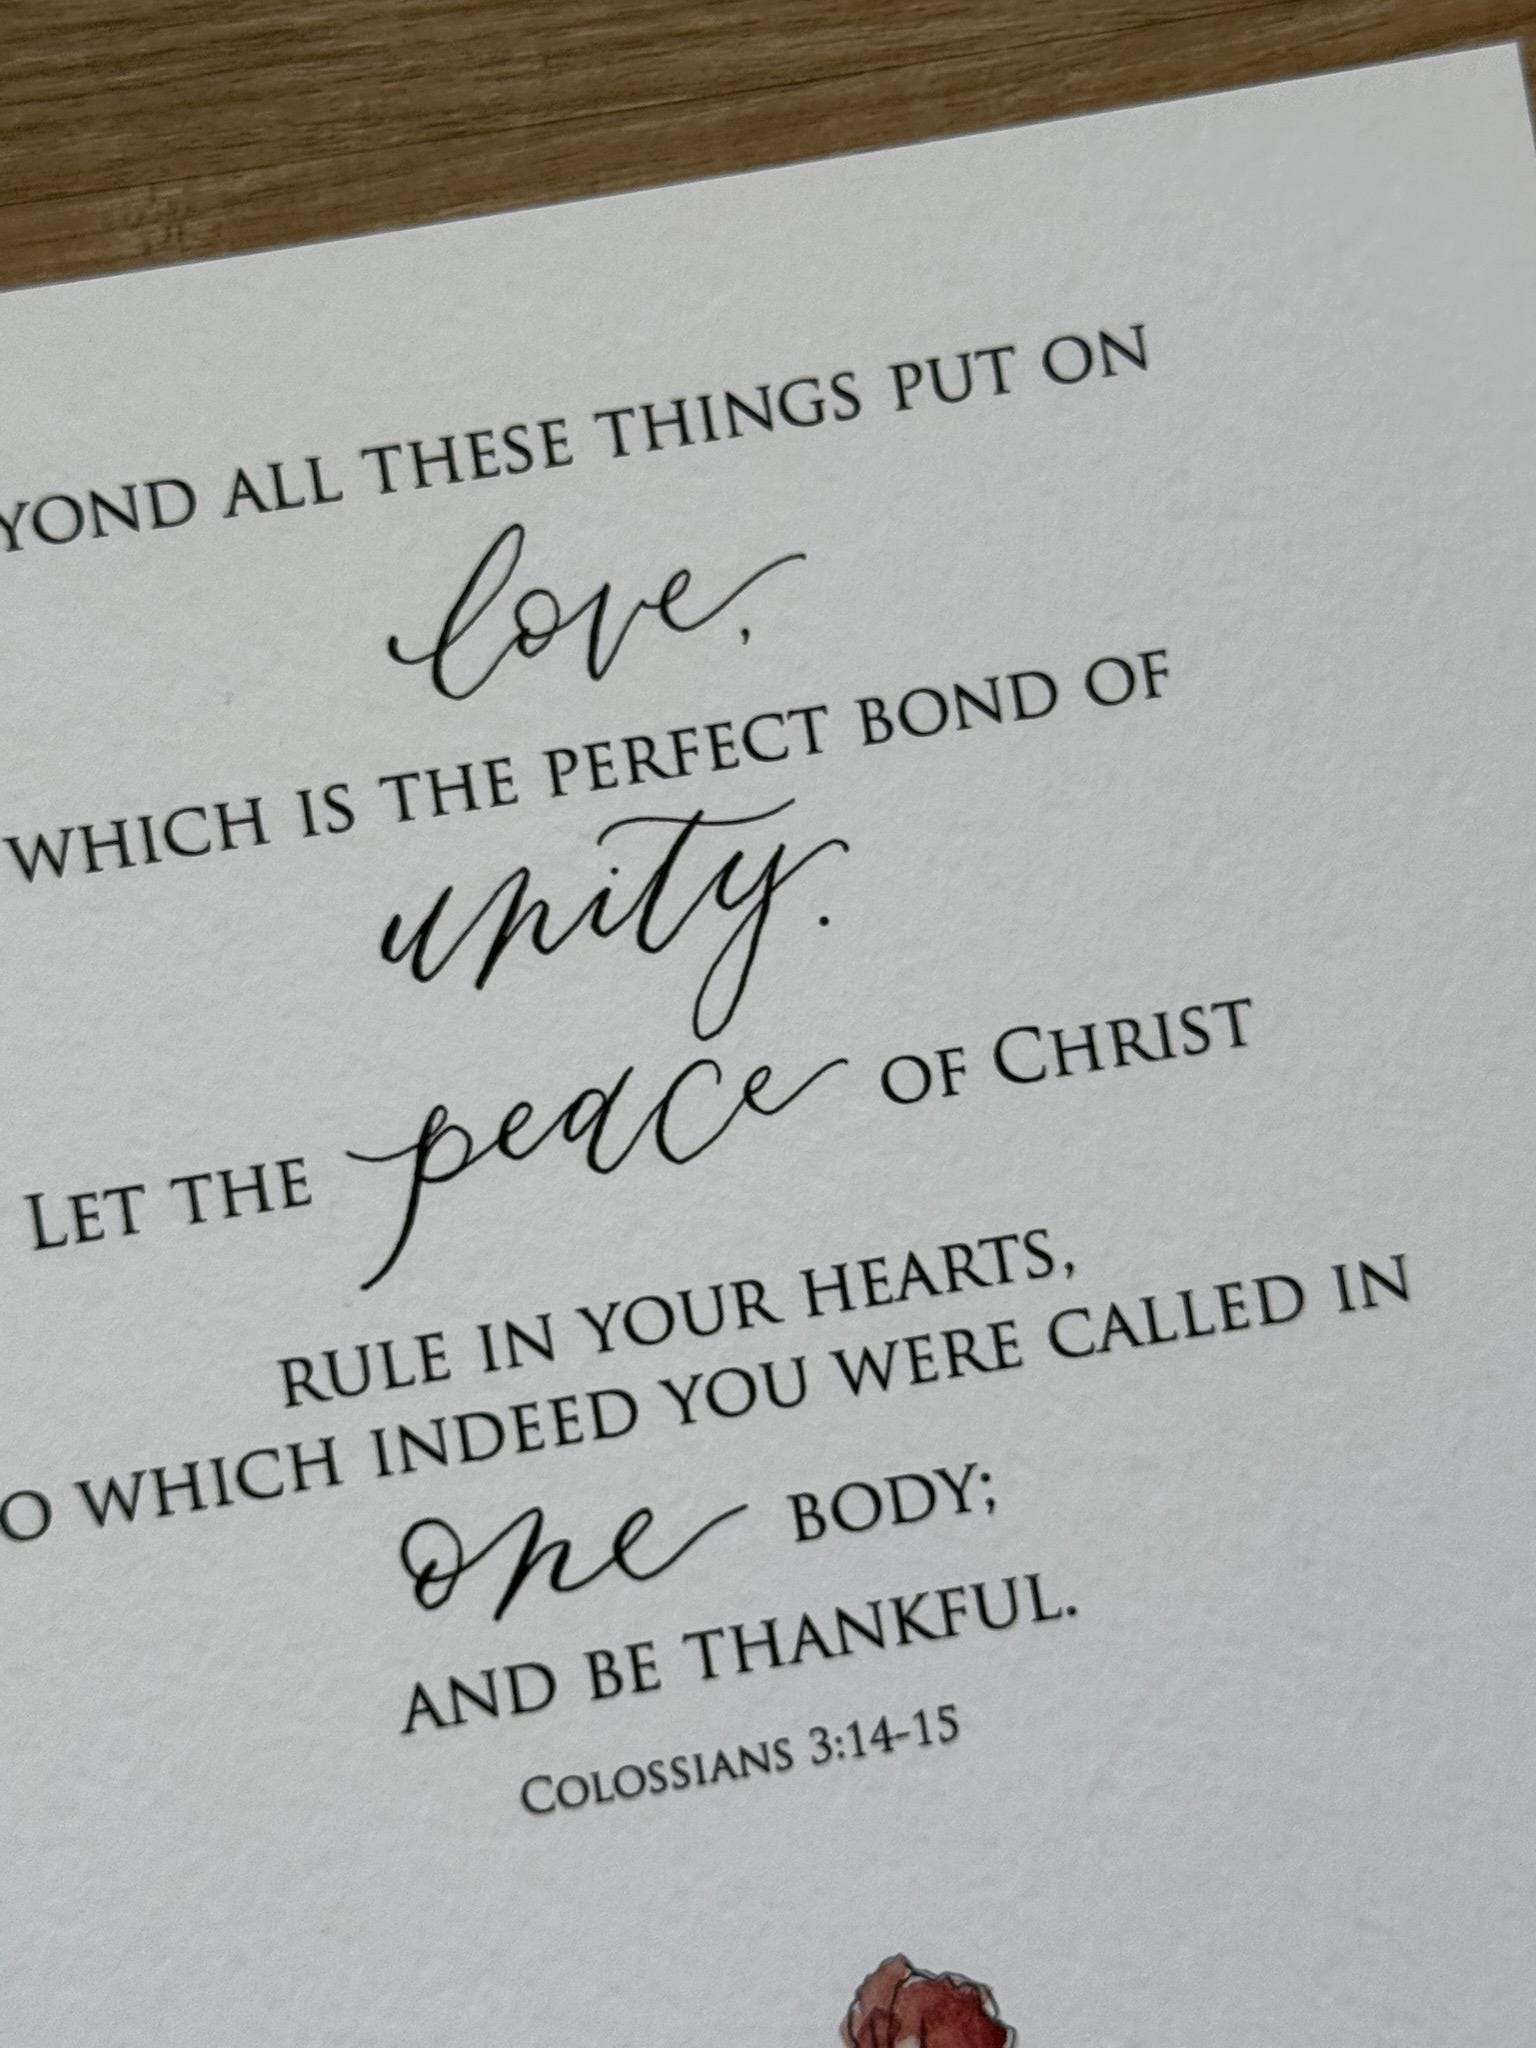 YOND ALL THESE THINGS PUT ON
love,
WHICH IS THE PERFECT BOND OF
unity.
LET THE peace OF CHRIST
RULE IN YOUR HEARTS,
O WHICH INDEED YOU WERE CALLED IN
one BODY;
AND BE THANKFUL.
COLOSSIANS 3:14-15